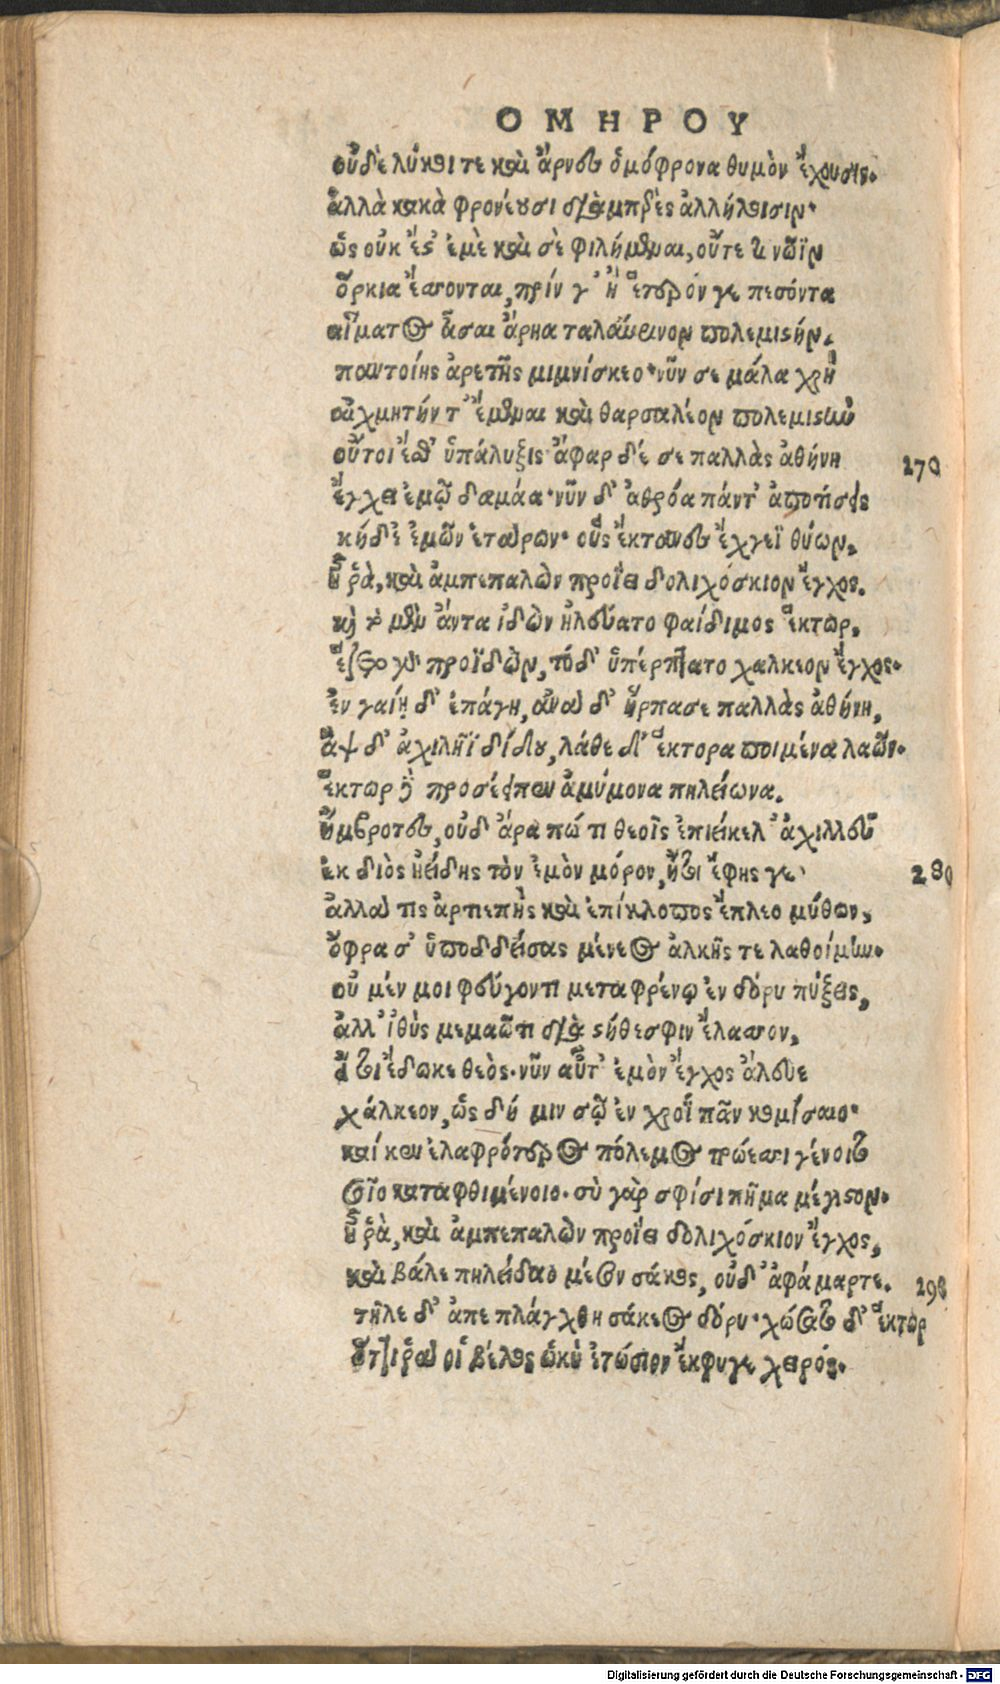 ΟΜΗΡΟΥ
οὐδὲ λύκοι τε καὶ ἄρνες ὁμόφρονα θυμὸν ἔχουσιν.
ἀλλὰ κακὰ φρονέουσι διαμπερὲς ἀλλήλοισιν·
ὣς οὐκ ἔς' ἐμὲ καὶ σὲ φιλήμεναι, οὔτε τι νῶϊν
ὅρκια ἔσσονται, πρίν γ' ἢ ἕτερόν γε πεσόντα
αἵματος ἆσαι ἄρηα ταλαύρινον πολεμιστήν.
παντοίης ἀρετῆς μιμνήσκεο· νῦν σε μάλα χρὴ
αἰχμητήν τ' ἔμεναι καὶ θαρσαλέον πολεμιστὴν
οὔτοι ἔτ' ἔσθ' ὑπάλυξις· ἄφαρ δέ σε παλλὰς ἀθήνη 270
ἔγχει ἐμῷ δαμάα· νῦν δ' ἀθρόα πάντ' ἀποτίσεις
κήδε' ἐμῶν ἑταίρων· οὓς ἔκτανες ἔγχεϊ θύων.
ἦ ῥὰ, καὶ ἀμπεπαλὼν προΐει δολιχόσκιον ἔγχος.
καὶ τὸ μὲν ἄντα ἰδὼν ἠλεύατο φαίδιμος ἕκτωρ,
ἕζετο γὰρ προϊδὼν, τόδ' ὑπέρπτατο χάλκεον ἔγχος·
ἐν γαίῃ δ' ἐπάγη, ἀνὰ δ' ἥρπασε παλλὰς ἀθήνη,
ἂψ δ' ἀχιλῆϊ δίδου, λάθε δ' ἕκτορα ποιμένα λαῶν·
ἕκτωρ δὲ προσέειπεν ἀμύμονα πηλείωνα.
ἤμβροτες, οὐδ' ἄρα πώ τι θεοῖς ἐπιείκελ' ἀχιλλεῦ
ἐκ διὸς ἠείδης τὸν ἐμὸν μόρον, ἦτοι ἔφης γε· 280
ἀλλά τις ἀρτιεπὴς καὶ ἐπίκλοπος ἔπλεο μύθων,
ὄφρα σ' ὑποδδείσας μένεος ἀλκῆς τε λαθοίμην.
οὐ μέν μοι φεύγοντι μεταφρένῳ ἐν δόρυ πήξεις,
ἀλλ' ἰθὺς μεμαῶτι διὰ στήθεσφιν ἔλασσον,
εἴ τοι ἔδωκε θεὸς· νῦν αὖτ' ἐμὸν ἔγχος ἄλευε
χάλκεον, ὡς δή μιν σῷ ἐν χροῒ πᾶν κομίσαιο·
καί κεν ἐλαφρότερος πόλεμος τρώεσσι γένοιτο
σεῖο καταφθιμένοιο· σὺ γάρ σφίσι πῆμα μέγιστον·
ἦ ῥὰ, καὶ ἀμπεπαλὼν προΐει δολιχόσκιον ἔγχος,
καὶ βάλε πηλείδαο μέσον σάκος, οὐδ' ἀφάμαρτε. 290
τῆλε δ' ἀπεπλάγχθη σάκεος δόρυ· χώσατο δ' ἕκτωρ
ὅττι ῥά οἱ βέλος ὠκὺ ἐτώσιον ἔκφυγε χειρός·
Digitalisierung gefördert durch die Deutsche Forschungsgemeinschaft - DFG